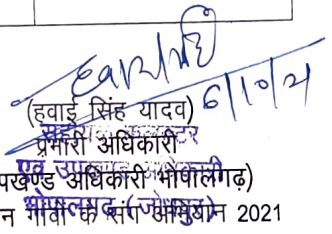 (हवाई सिंह यादव) 6/10/21
प्रभारी अधिकारी
एवं उपखण्ड अधिकारी
पखण्ड अधिकारी भोपालगढ़)
भोपालगढ़ (जोधपुर)
न गांवों के संग अभियान 2021